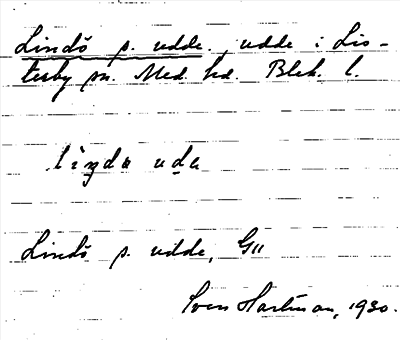 Lindö s. udde, udde i Lis-
terby sn. Med. hd. Blek. l.
Lindö s. udde, G11
Sven Hartman, 1930.